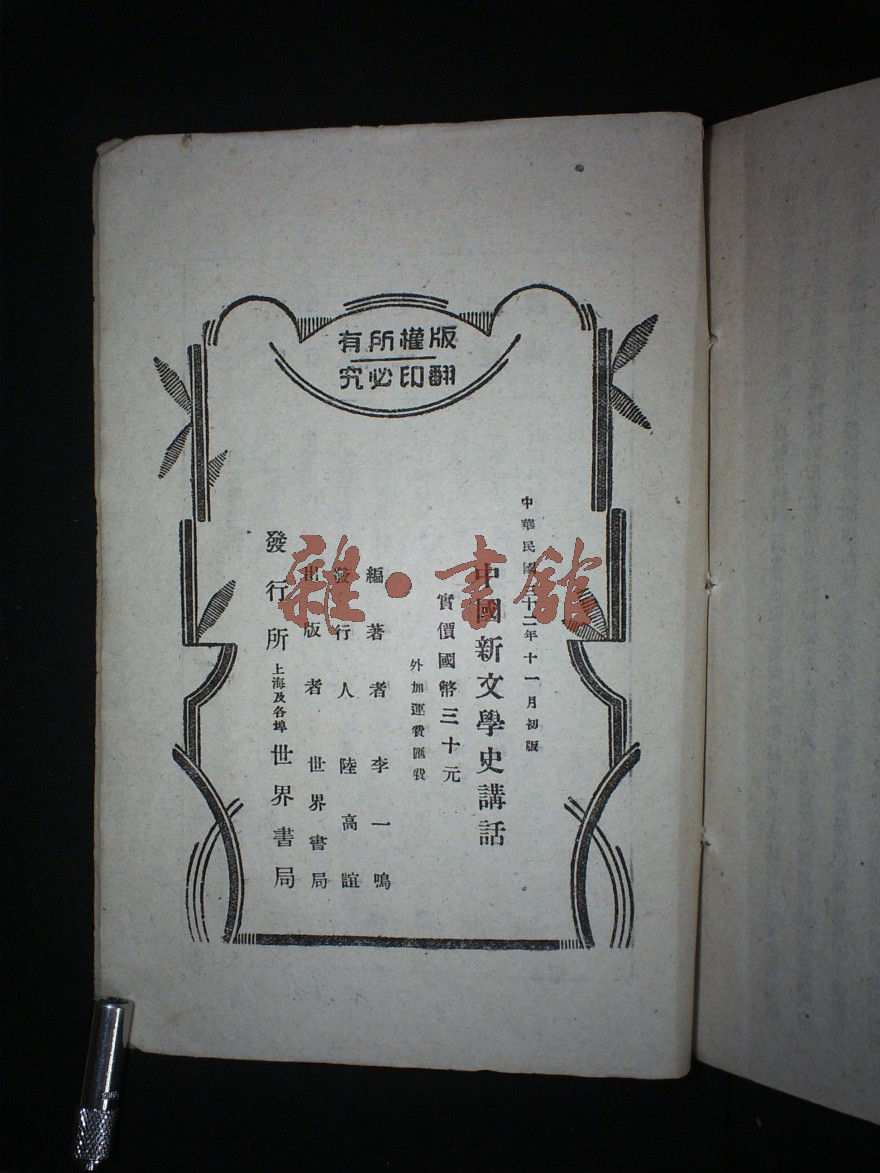 版權所有
翻印必究
中華民國三十二年十一月初版
中國新文學史講話
實價國幣三十元
外加運費匯費
編著者 李一鳴
發行人 陸高誼
出版者 世界書局
發行所 上海及各埠 世界書局
雜·書館